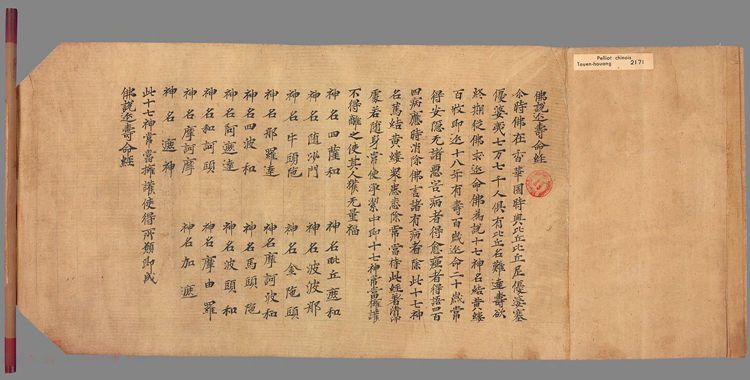 Pelliot chinois
Touen-houang 2171
佛說延壽命經
尒時佛在香華園時與比丘比丘尼優婆塞
優婆夷七万七千人俱有比丘名難達壽欲
終期從佛求延命佛為說十七神名結黃縷
百牧即延十八年有壽百歲延命二十歲常
得安隱无諸惡害病者得愈瘂者得語四百
四病應時消除佛言諸有病者除此十七神
名萬結黃縷眾患悉除常當持此經著清淨
處若隨身常使淨絜中即十七神常當擁護
不得離之使其人獲无量福
神名四薩和 神名毗丘遮和
神名隨沙門 神名波波那
神名牛頭陁 神名金陁頭
神名那羅達 神名摩訶波和
神名四波和 神名馬頭陁
神名阿遮達 神名波頭和
神名和訶頭 神名摩由羅
神名摩訶摩 神名加遮
神名遮神
此十七神常當擁護使得所願即成
佛說延壽命經